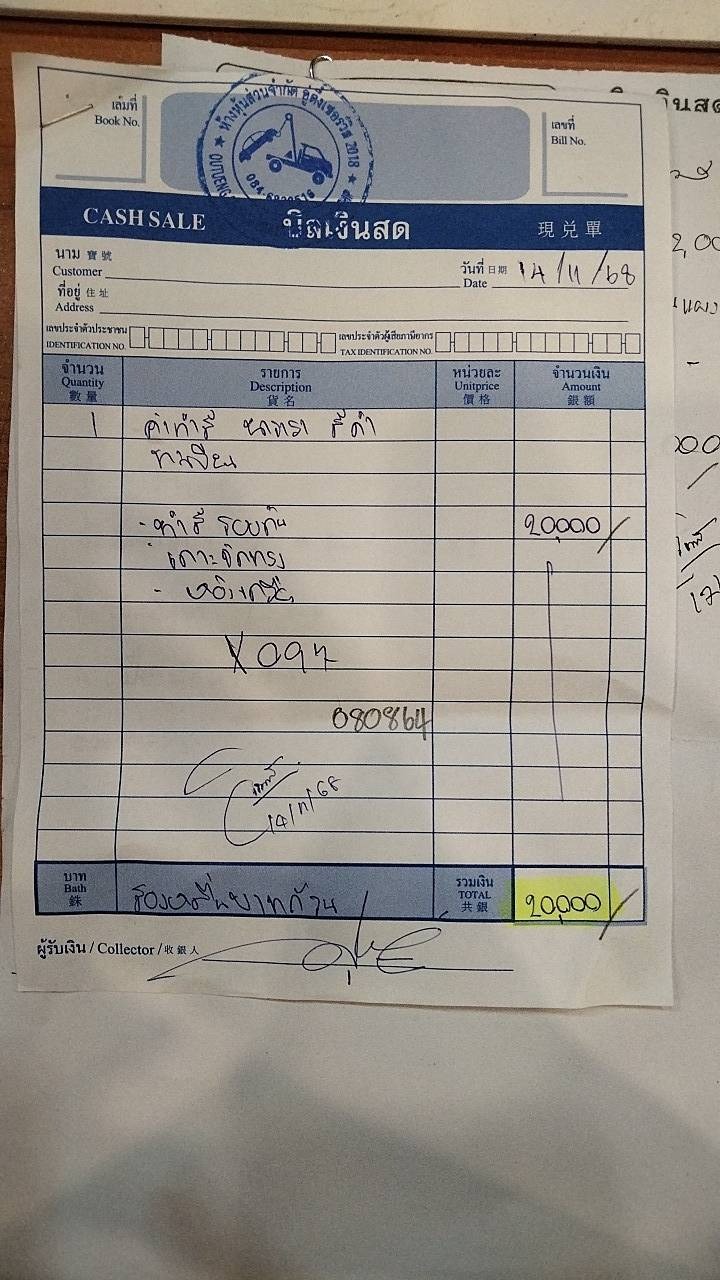 เล่มที่
Book No.
ห้างหุ้นส่วนจำกัด อู่ดิ่งเซอร์วิส 2018
เลขที่
Bill No.
CASH SALE บิลเงินสด 現兌單
นาม 寶號
Customer
วันที่ 日期
Date 14/11/68
ที่อยู่ 住址
Address
เลขประจำตัวประชาชน
IDENTIFICATION NO.
เลขประจำตัวผู้เสียภาษีอากร
TAX IDENTIFICATION NO.
จำนวน รายการ หน่วยละ จำนวนเงิน
Quantity Description Unitprice Amount
數量 貨名 價格 銀額
1 ค่าทำสี สีดำ
- ทำสี รอบคัน 20,000/
- เคาะ
X 097
080864
14/11/68
บาท
Bath
銖
สองหมื่นบาทถ้วน
รวมเงิน
TOTAL
共銀
20,000/
ผู้รับเงิน / Collector / 收銀人